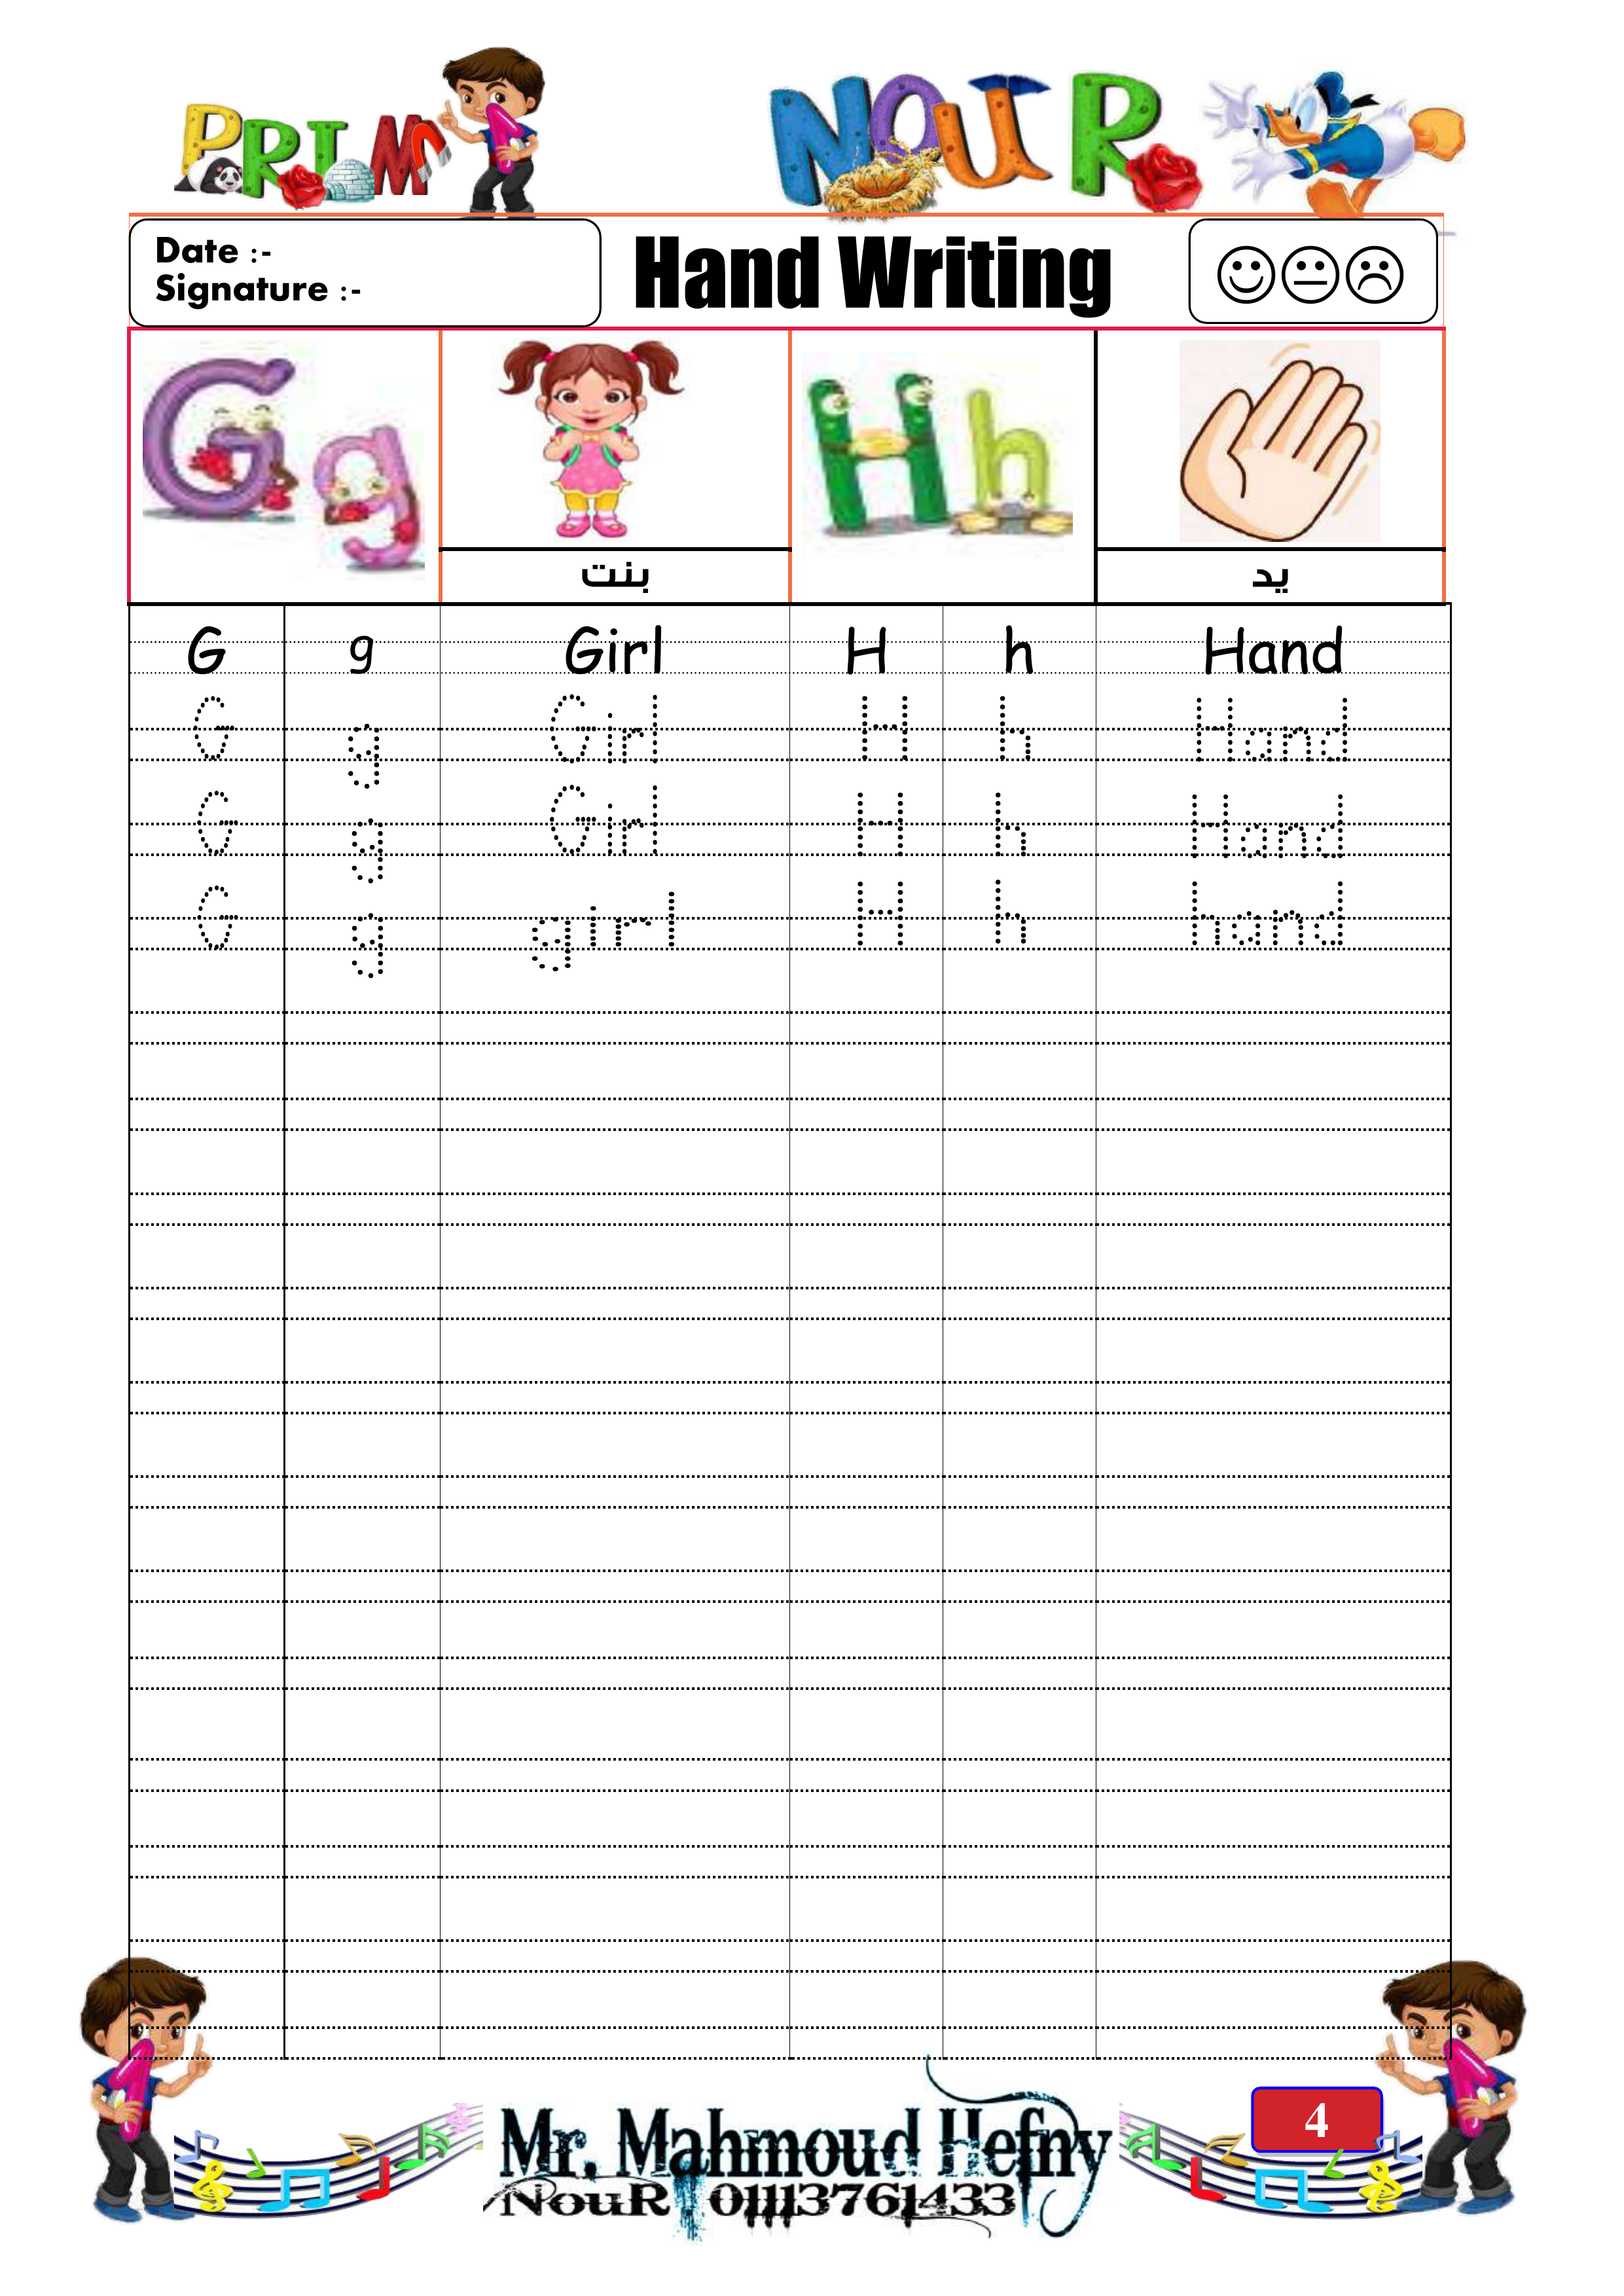 PRIM NOUR
Date :-
Signature :-
Hand Writing
G g H h
بنت يد
G g Girl H h Hand
G g Girl H h Hand
G g Girl H h Hand
G g girl H h hand
Mr. Mahmoud Hefny
NouR 01113761433
4